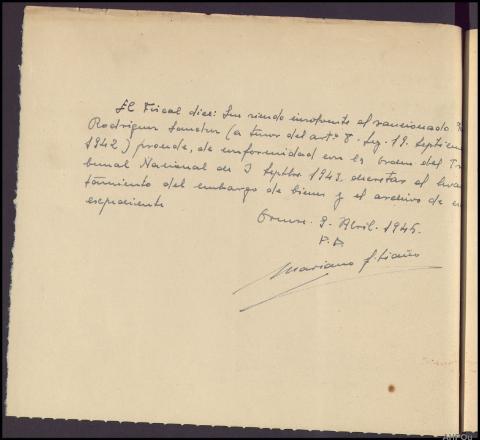 El Fiscal dice: Que siendo insolvente el sancionado
Rodriguez Sanchez (a tenor del artº 8. Ley 19. Septiem
1942) procede, de conformidad con la Orden del Tri
bunal Nacional de 3 Septbre 1943. decretar el levan
tamiento del embargo de bienes y el archivo de e
expediente
Orense. 9. Abril. 1945.
P. D.
Mariano
AHPOu